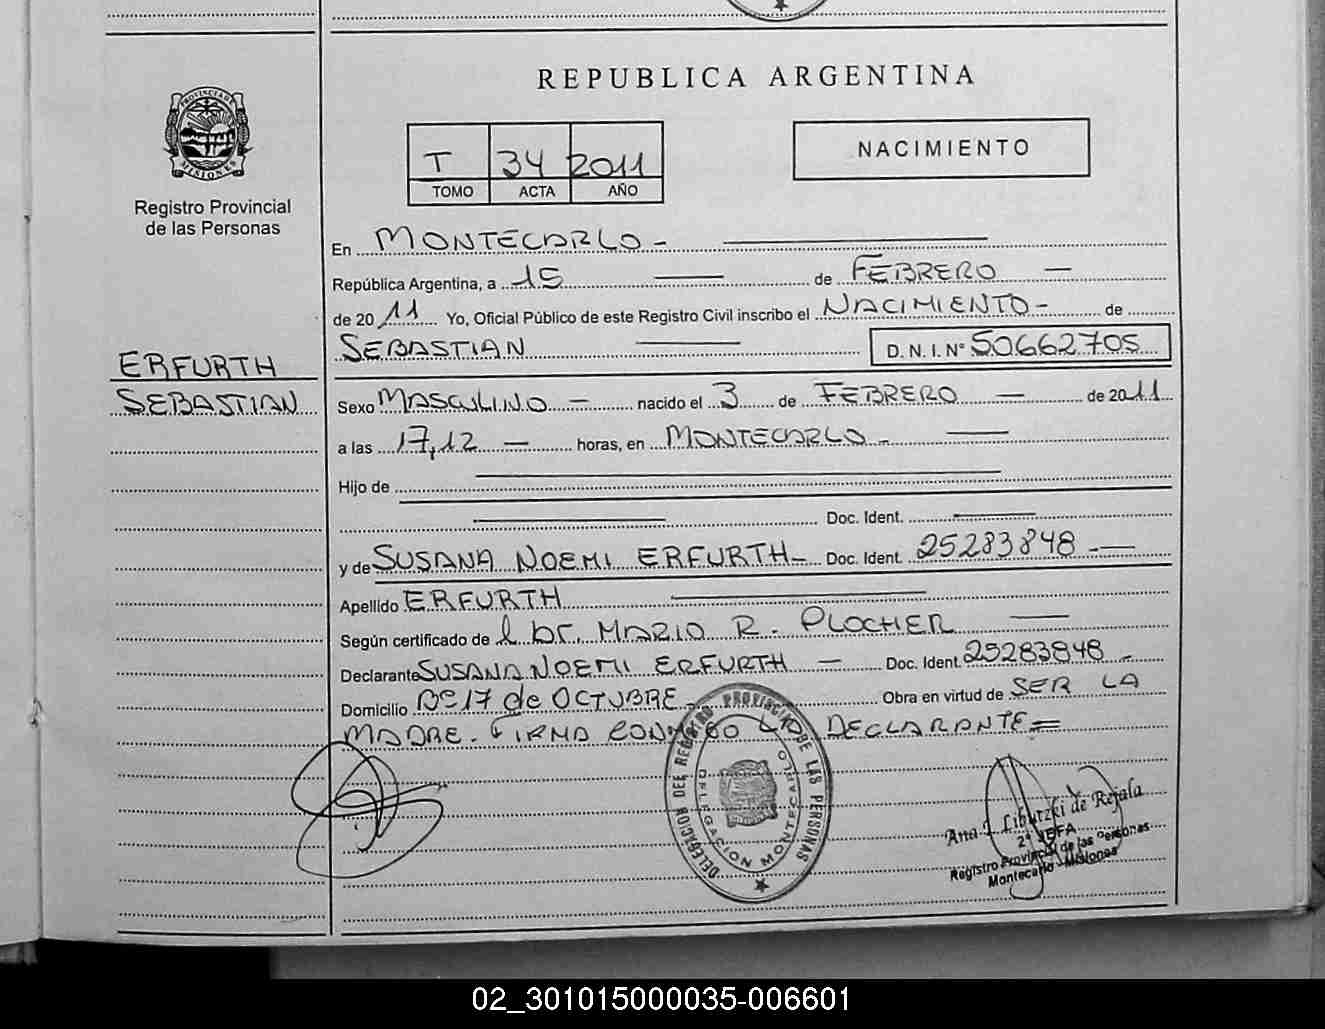 REPUBLICA ARGENTINA
PROVINCIA DE MISIONES
Registro Provincial
de las Personas
T 34 2011
TOMO ACTA AÑO
NACIMIENTO
En MONTECARLO -
República Argentina, a 15 de FEBRERO
de 2011 Yo, Oficial Público de este Registro Civil inscribo el NACIMIENTO - de
SEBASTIAN D. N. I. N° 50662705
ERFURTH
SEBASTIAN
Sexo MASCULINO - nacido el 3 de FEBRERO - de 2011
a las 17,12 - horas, en MONTECARLO -
Hijo de
Doc. Ident.
y de SUSANA NOEMI ERFURTH - Doc. Ident. 25283848 -
Apellido ERFURTH
Según certificado de l Dr. MARIO R. PLOCHER
Declarante SUSANA NOEMI ERFURTH - Doc. Ident. 25283848 -
Domicilio B° 17 de OCTUBRE Obra en virtud de SER LA
MADRE. FIRMA CONMIGO LA DECLARANTE =
DELEGACION DEL REGISTRO PROVINCIAL DE LAS PERSONAS
DELEGACION MONTECARLO
de Rejala
2ª JEFA
Registro Provincial de las Personas
Montecarlo - Misiones
02_301015000035-006601